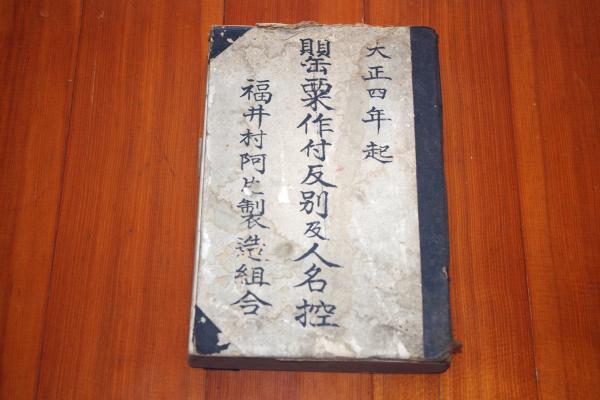 大正四年起
罌粟作付反別及人名控
福井村阿片製造組合